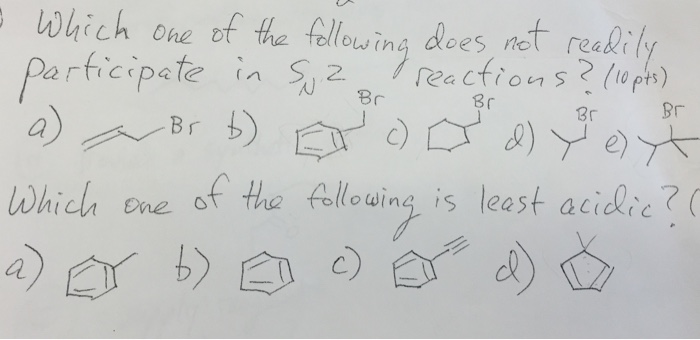 Which one of the following does not readily
participate in SN2 reactions? (10pts)
Br Br Br Br
a) Br b) c) d) e)
Which one of the following is least acidic? (
a) b) c) d)